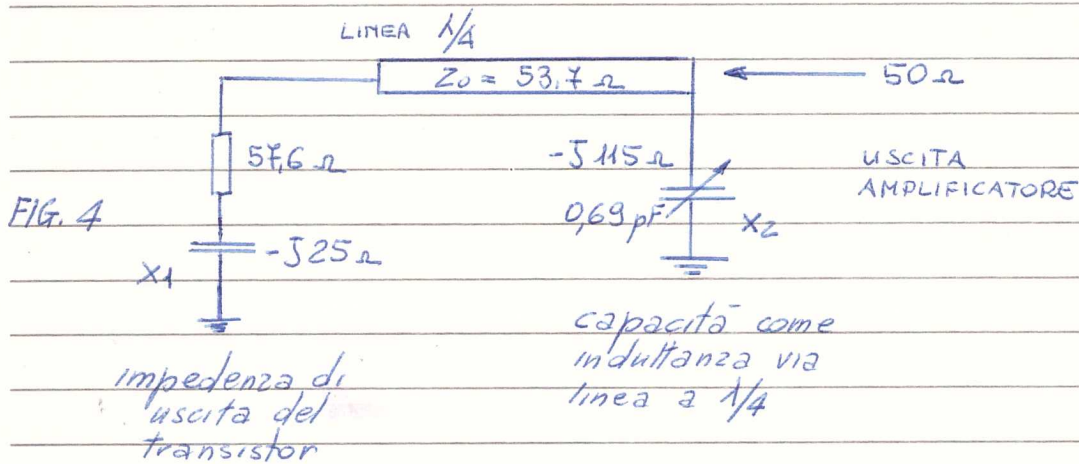 LINEA λ/4
Z0 = 53,7 Ω
50 Ω
57,6 Ω
-J 115 Ω
USCITA
AMPLIFICATORE
FIG. 4
0,69 pF
X2
-J25 Ω
X1
capacità come
induttanza via
linea a λ/4
impedenza di
uscita del
transistor